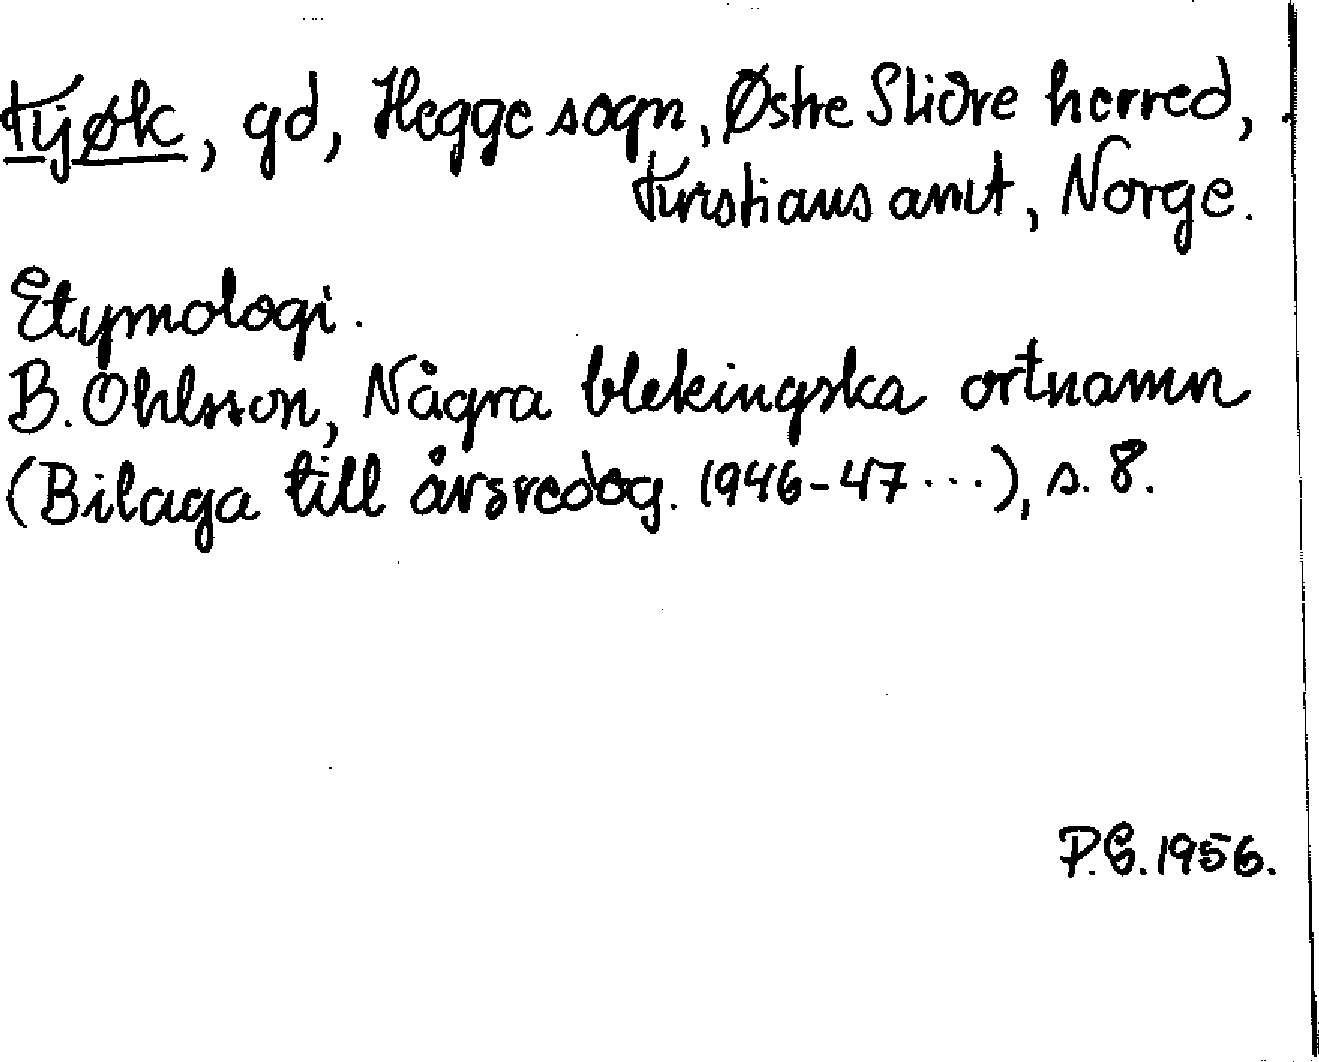 Kjøk, gd, Hegge sogn, Østre Slidre herred,
Kristians amt, Norge.
Etymologi.
B. Ohlsson, Några blekingska ortnamn
(Bilaga till årsredog. 1946-47...), s. 8.
P.G. 1956.